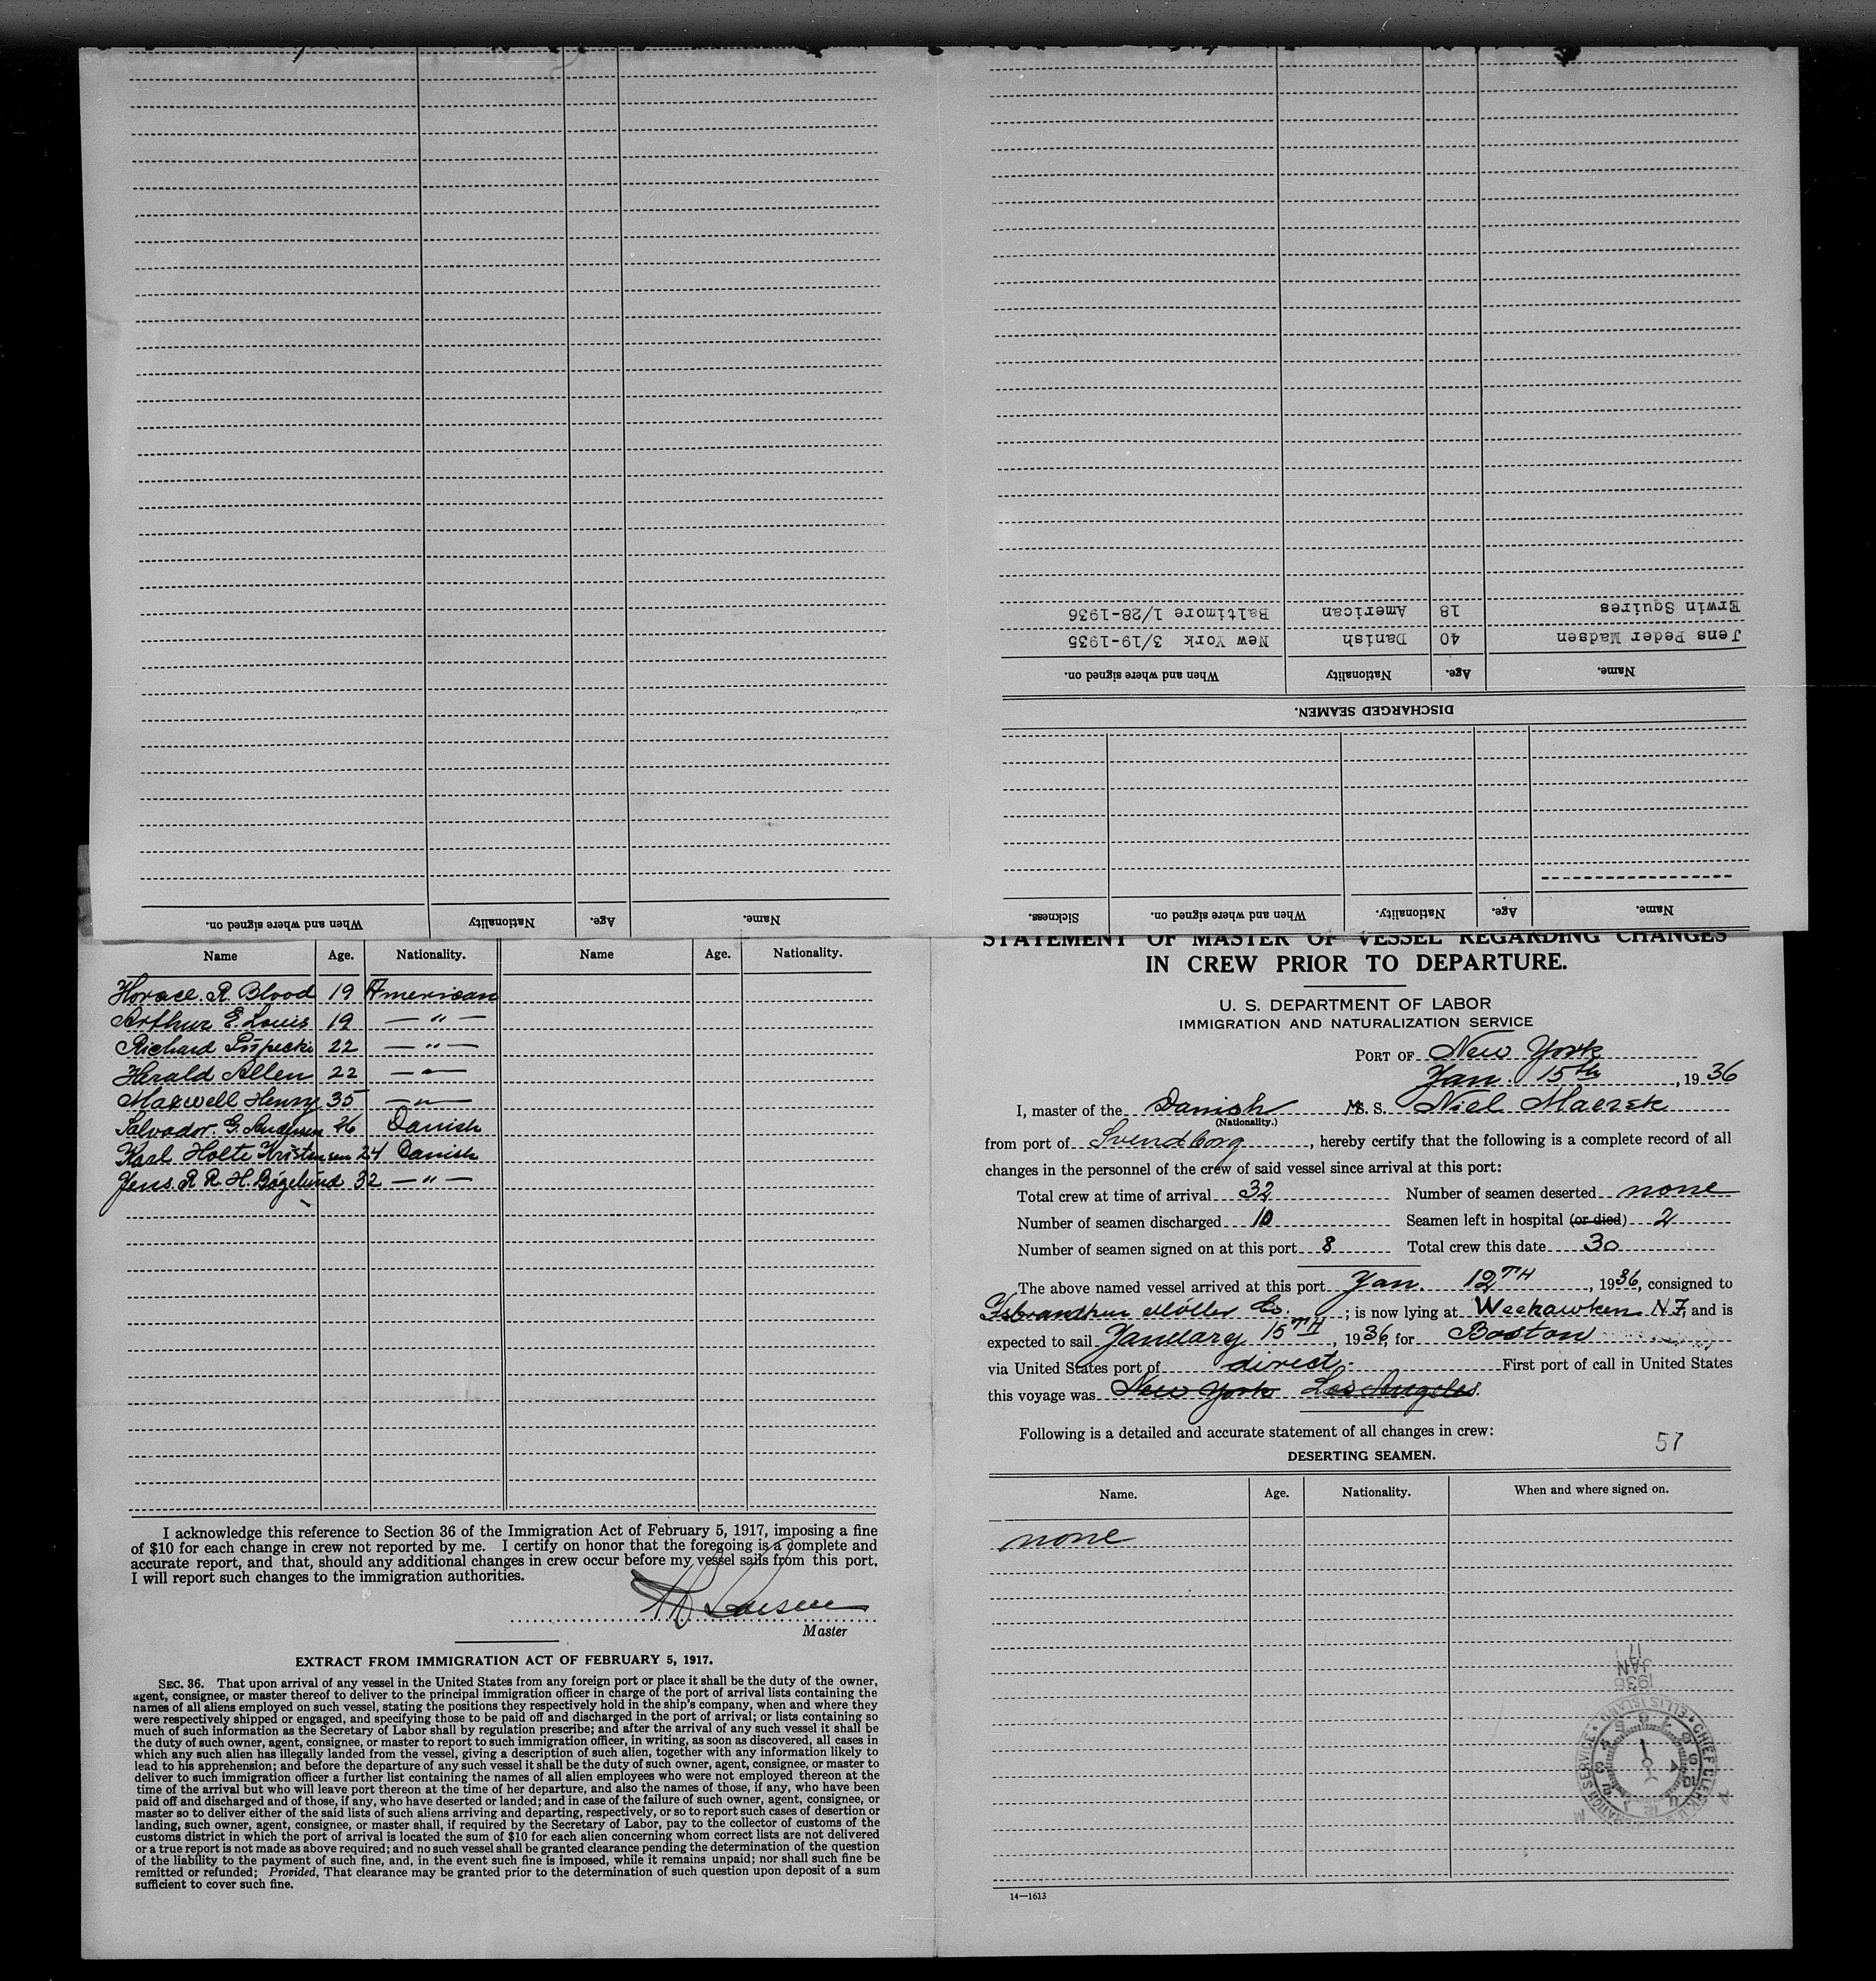 Name. Age. Nationality When and where signed on.
Name. Age. Nationality. When and where signed on. Sickness.
DISCHARGED SEAMEN.
Name. Age. Nationality When and where signed on.
Jens Peder Madsen 40 Danish New York 3/19-1935
Erwin Squires 18 American Baltimore 1/28-1936
Name Age. Nationality. Name Age. Nationality.
Horace. R. Blood 19 American
Arthur E. Louis 19 — " —
Richard 22 — " —
Herald Allen 22 — " —
Maxwell Henry 35 — " —
Salvador. G. Andersen 26 Danish
Karl Holte Kristensen 24 Danish
Jens. R R H. Bøgelund 32 — " —
I acknowledge this reference to Section 36 of the Immigration Act of February 5, 1917, imposing a fine
of $10 for each change in crew not reported by me. I certify on honor that the foregoing is a complete and
accurate report, and that, should any additional changes in crew occur before my vessel sails from this port,
I will report such changes to the immigration authorities.
Larsen
Master
EXTRACT FROM IMMIGRATION ACT OF FEBRUARY 5, 1917.
SEC. 36. That upon arrival of any vessel in the United States from any foreign port or place it shall be the duty of the owner,
agent, consignee, or master thereof to deliver to the principal immigration officer in charge of the port of arrival lists containing the
names of all aliens employed on such vessel, stating the positions they respectively hold in the ship's company, when and where they
were respectively shipped or engaged, and specifying those to be paid off and discharged in the port of arrival; or lists containing so
much of such information as the Secretary of Labor shall by regulation prescribe; and after the arrival of any such vessel it shall be
the duty of such owner, agent, consignee, or master to report to such immigration officer, in writing, as soon as discovered, all cases in
which any such alien has illegally landed from the vessel, giving a description of such alien, together with any information likely to
lead to his apprehension; and before the departure of any such vessel it shall be the duty of such owner, agent, consignee, or master to
deliver to such immigration officer a further list containing the names of all alien employees who were not employed thereon at the
time of the arrival but who will leave port thereon at the time of her departure, and also the names of those, if any, who have been
paid off and discharged and of those, if any, who have deserted or landed; and in case of the failure of such owner, agent, consignee, or
master so to deliver either of the said lists of such aliens arriving and departing, respectively, or so to report such cases of desertion or
landing, such owner, agent, consignee, or master shall, if required by the Secretary of Labor, pay to the collector of customs of the
customs district in which the port of arrival is located the sum of $10 for each alien concerning whom correct lists are not delivered
or a true report is not made as above required; and no such vessel shall be granted clearance pending the determination of the question
of the liability to the payment of such fine, and, in the event such fine is imposed, while it remains unpaid; nor shall such fine be
remitted or refunded; Provided, That clearance may be granted prior to the determination of such question upon deposit of a sum
sufficient to cover such fine.
STATEMENT OF MASTER OF VESSEL REGARDING CHANGES
IN CREW PRIOR TO DEPARTURE.
U. S. DEPARTMENT OF LABOR
IMMIGRATION AND NATURALIZATION SERVICE
PORT OF New York
Jan. 15th, 1936
I, master of the Danish M. S. Niel Maersk
(Nationality.)
from port of Svendborg, hereby certify that the following is a complete record of all
changes in the personnel of the crew of said vessel since arrival at this port:
Total crew at time of arrival 32 Number of seamen deserted none
Number of seamen discharged 10 Seamen left in hospital (or died) 2
Number of seamen signed on at this port 8 Total crew this date 30
The above named vessel arrived at this port Jan. 12TH, 1936, consigned to
Isbrandtsen Møller Co.; is now lying at Weehawken N.J., and is
expected to sail January 15TH, 1936, for Boston
via United States port of direct. First port of call in United States
this voyage was New York Los Angeles.
Following is a detailed and accurate statement of all changes in crew:
57
DESERTING SEAMEN.
Name. Age. Nationality. When and where signed on.
none
1936
JAN
17
CHIEF CLERK U.S. IMMIGRATION SERVICE • ELLIS ISLAND •
14—1613